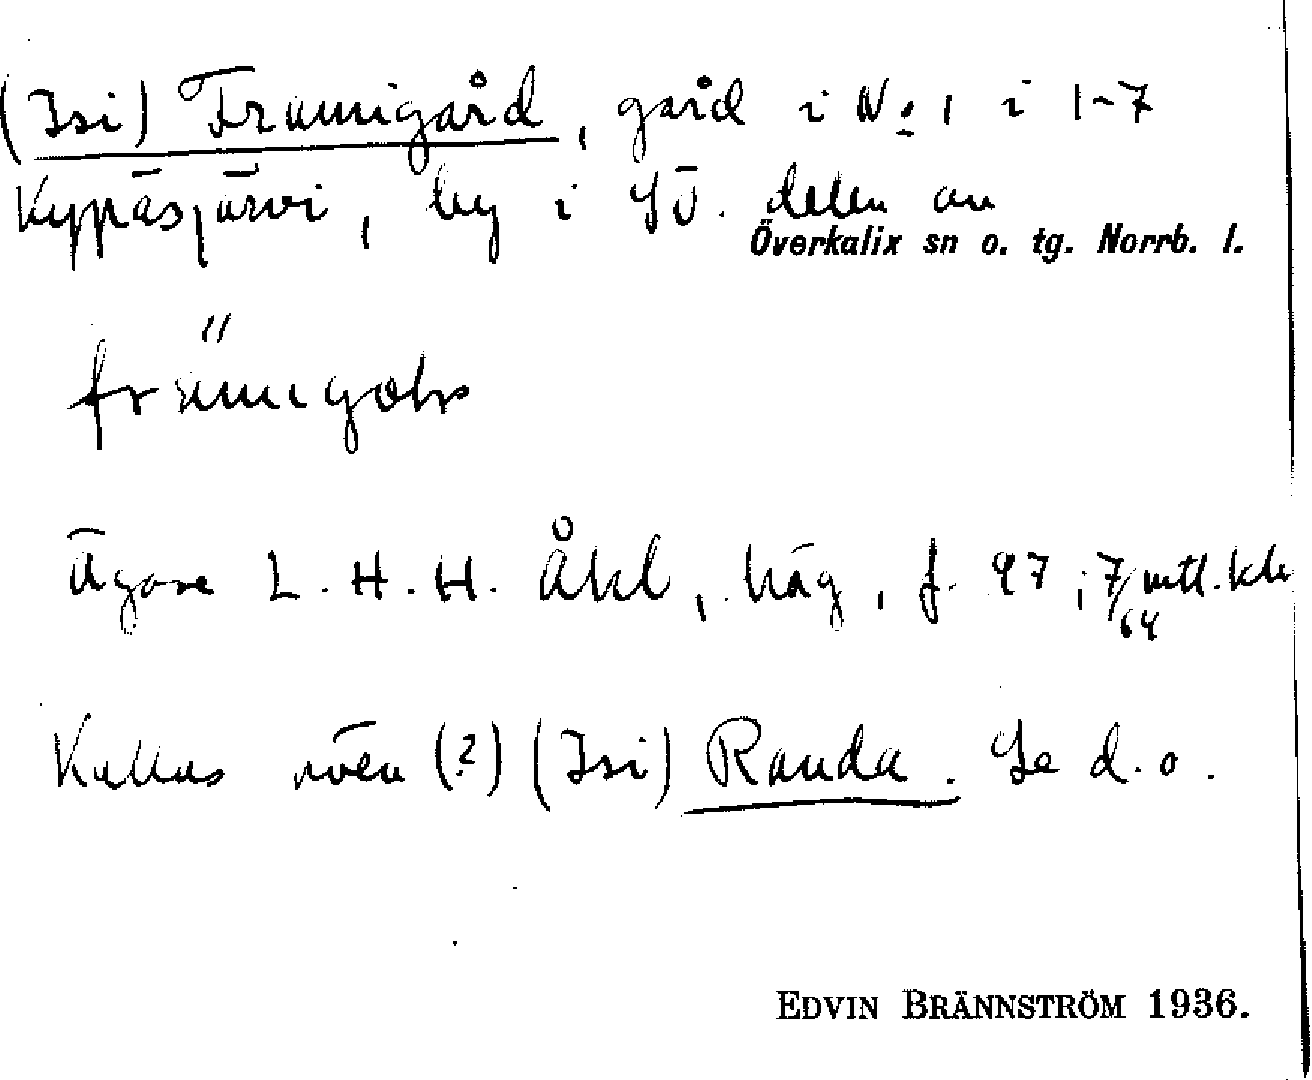 (Isi) Framigård, gård i No 1 i 1-7
Kypäsjärvi, by i SÖ. delen av
Överkalix sn o. tg. Norrb. l.
främigols
Ägare L. H. H. Åkl, häg, f. 97; 7/64 mtl. kls
Kallas även (?) (Isi) Randa. Se d. o.
EDVIN BRÄNNSTRÖM 1936.